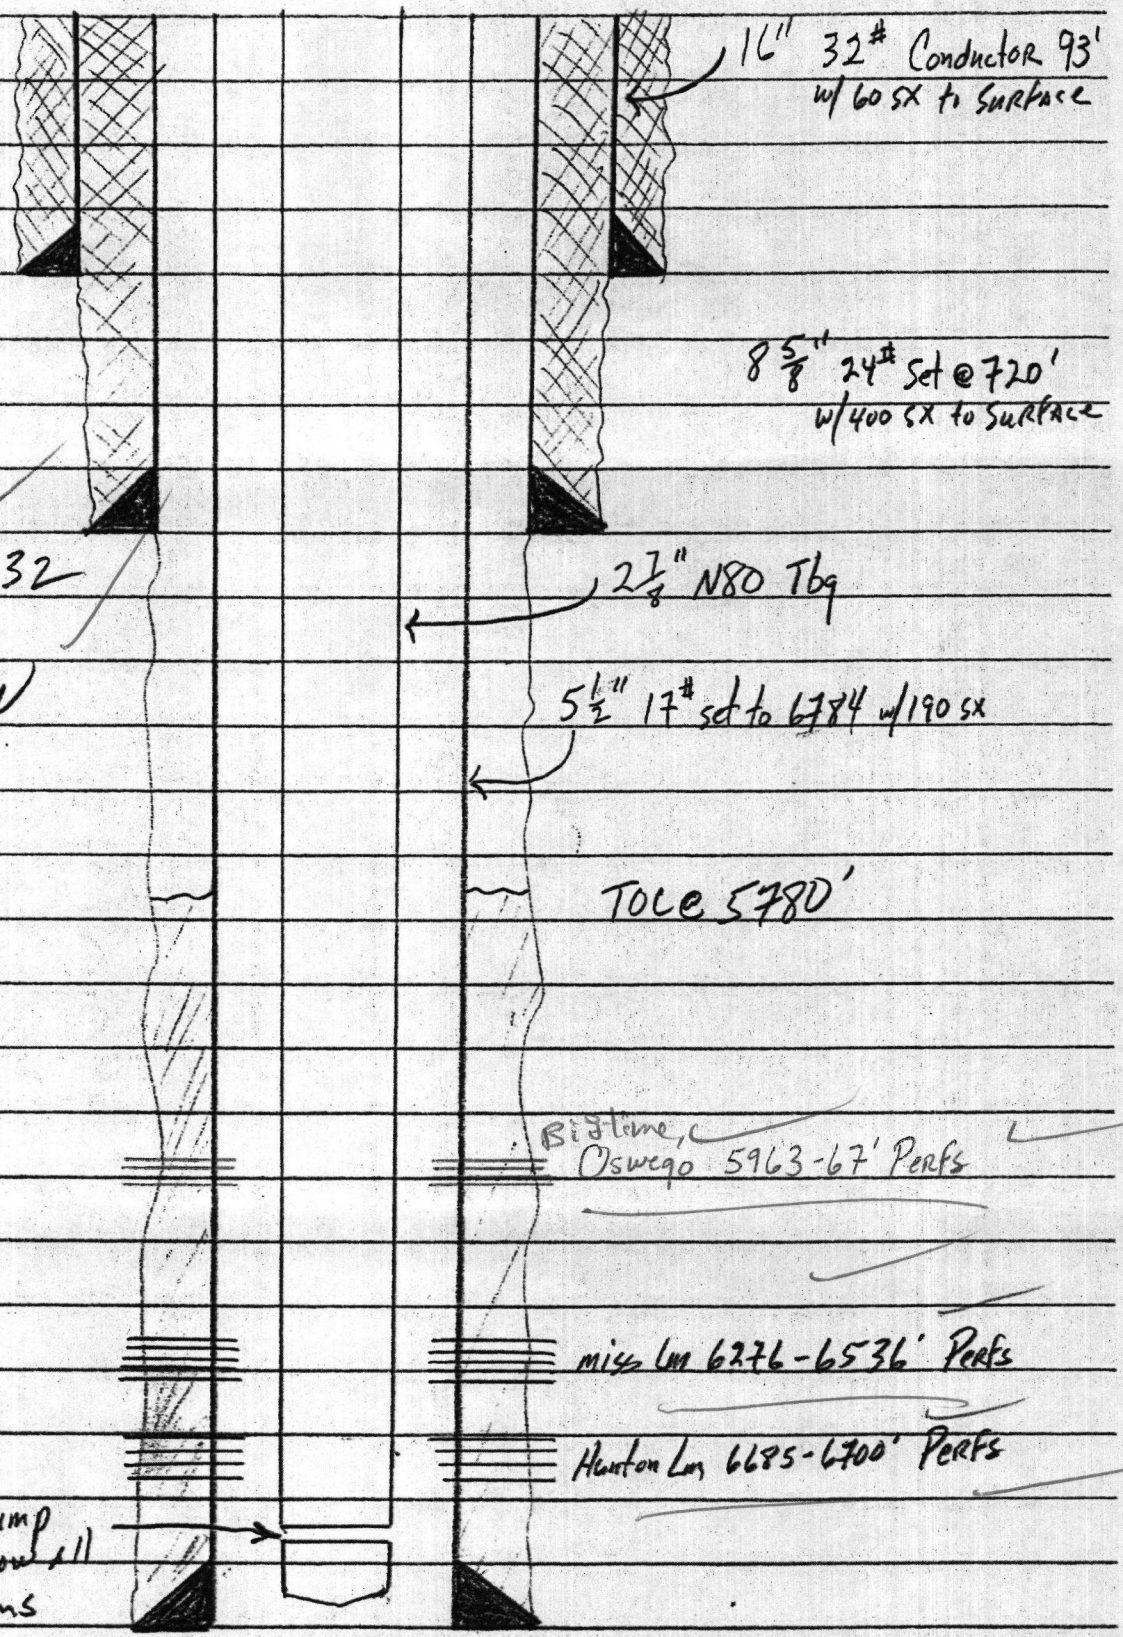 16" 32# Conductor 93'
w/ 60 sx to Surface
8 5/8" 24# Set @ 720'
w/400 sx to Surface
32
2 7/8" N80 Tbg
5 1/2" 17# set to 6784 w/190 sx
TOC @ 5780'
Big lime,
Oswego 5963-67' Perfs
miss Lm 6276-6536' Perfs
Hunton Lm 6685-6700' Perfs